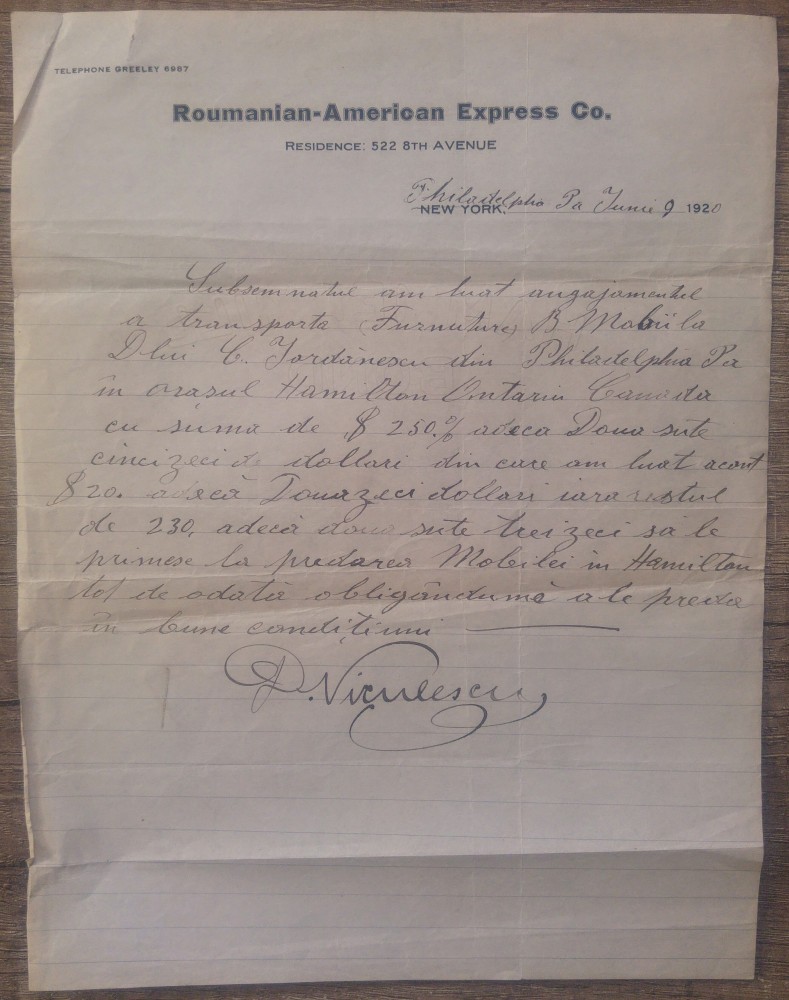 TELEPHONE GREELEY 6987
Roumanian-American Express Co.
RESIDENCE: 522 8TH AVENUE
Philadelphia Pa Junie 9 1920
NEW YORK,
Subsemnatul am luat angajamentul
a transporta (Furnuture) Mobiila
Dlui C. Jordănescu din Philadelphia Pa
în orasul Hamilton Ontario Canada
cu suma de $ 250.% adeca Doua sute
cincizeci de dollari din care am luat acont
$20. adecă Douazeci dollari iara restul
de 230, adecă doua sute treizeci să le
primesc la predarea Mobilei in Hamilton
tot de odată obligândumĕ a le preda
în bune condițiuni
D. Niculescu